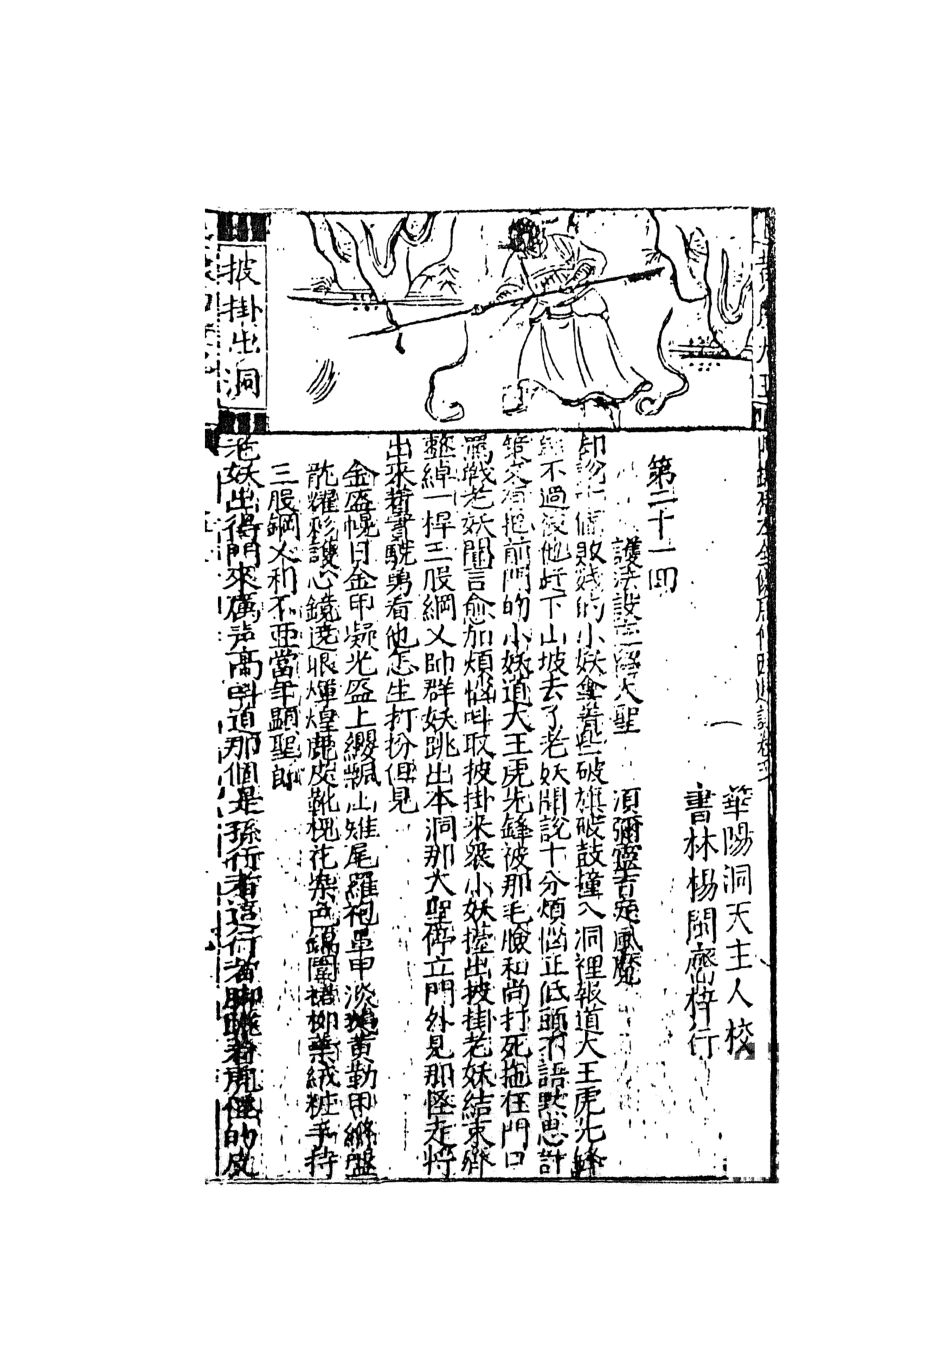 黃風大王
披掛出洞
華陽洞天主人校
書林楊閩齋梓行
第二十一回
護法設庄留大聖 須彌靈吉定風魔
却說那五十個敗殘的小妖拿着些破旗破鼓撞入洞裡報道大王虎先鋒
不過被他赶下山坡去了老妖聞說十分煩惱正低頭不語默思計
策又有把前門的小妖道大王虎先鋒被那毛臉和尚打死拖在門口
罵戰老妖聞言愈加煩惱叫取披掛來衆小妖擡出披掛老妖結束齊
整綽一桿三股鋼叉帥群妖跳出本洞那大聖停立門外見那怪走將
出來着實驍勇看他怎生打扮但見
金盔幌日金甲凝光盔上纓飄山雉尾羅袍罩甲淡鵝黃勒甲縧盤
龍耀彩護心鏡遶眼煇煌鹿皮靴槐花染色錦圍裙柳葉絨粧手持
三股鋼叉利不亞當年顯聖郎
老妖出得門來厲声高叫道那個是孫行者這行者脚跐着虎怪的皮